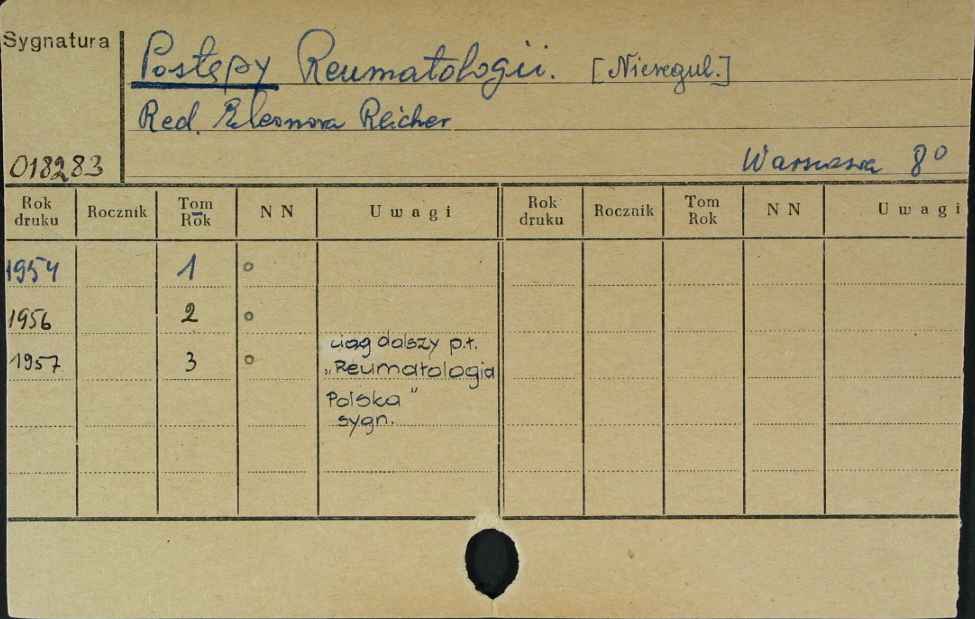 Sygnatura
Postępy Reumatologii. [Nieregul.]
Red. Eleonora Reicher
018283
Warszawa 8⁰
Rok druku Rocznik Tom Rok N N Uwagi Rok druku Rocznik Tom Rok N N Uwagi
1954 1 o
1956 2 o
1957 3 o
ciąg dalszy p.t.
„Reumatologia
Polska"
sygn.